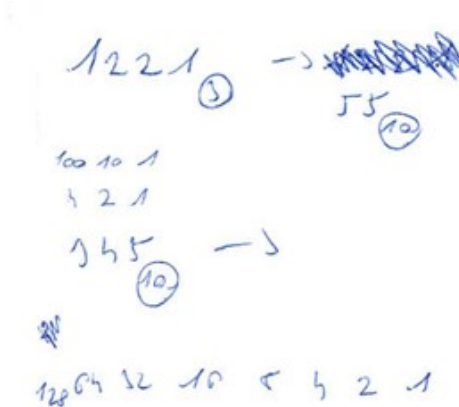 1221 (3) →
55 (10)
100 10 1
4 2 1
345 (10) →
128 64 32 16 8 4 2 1